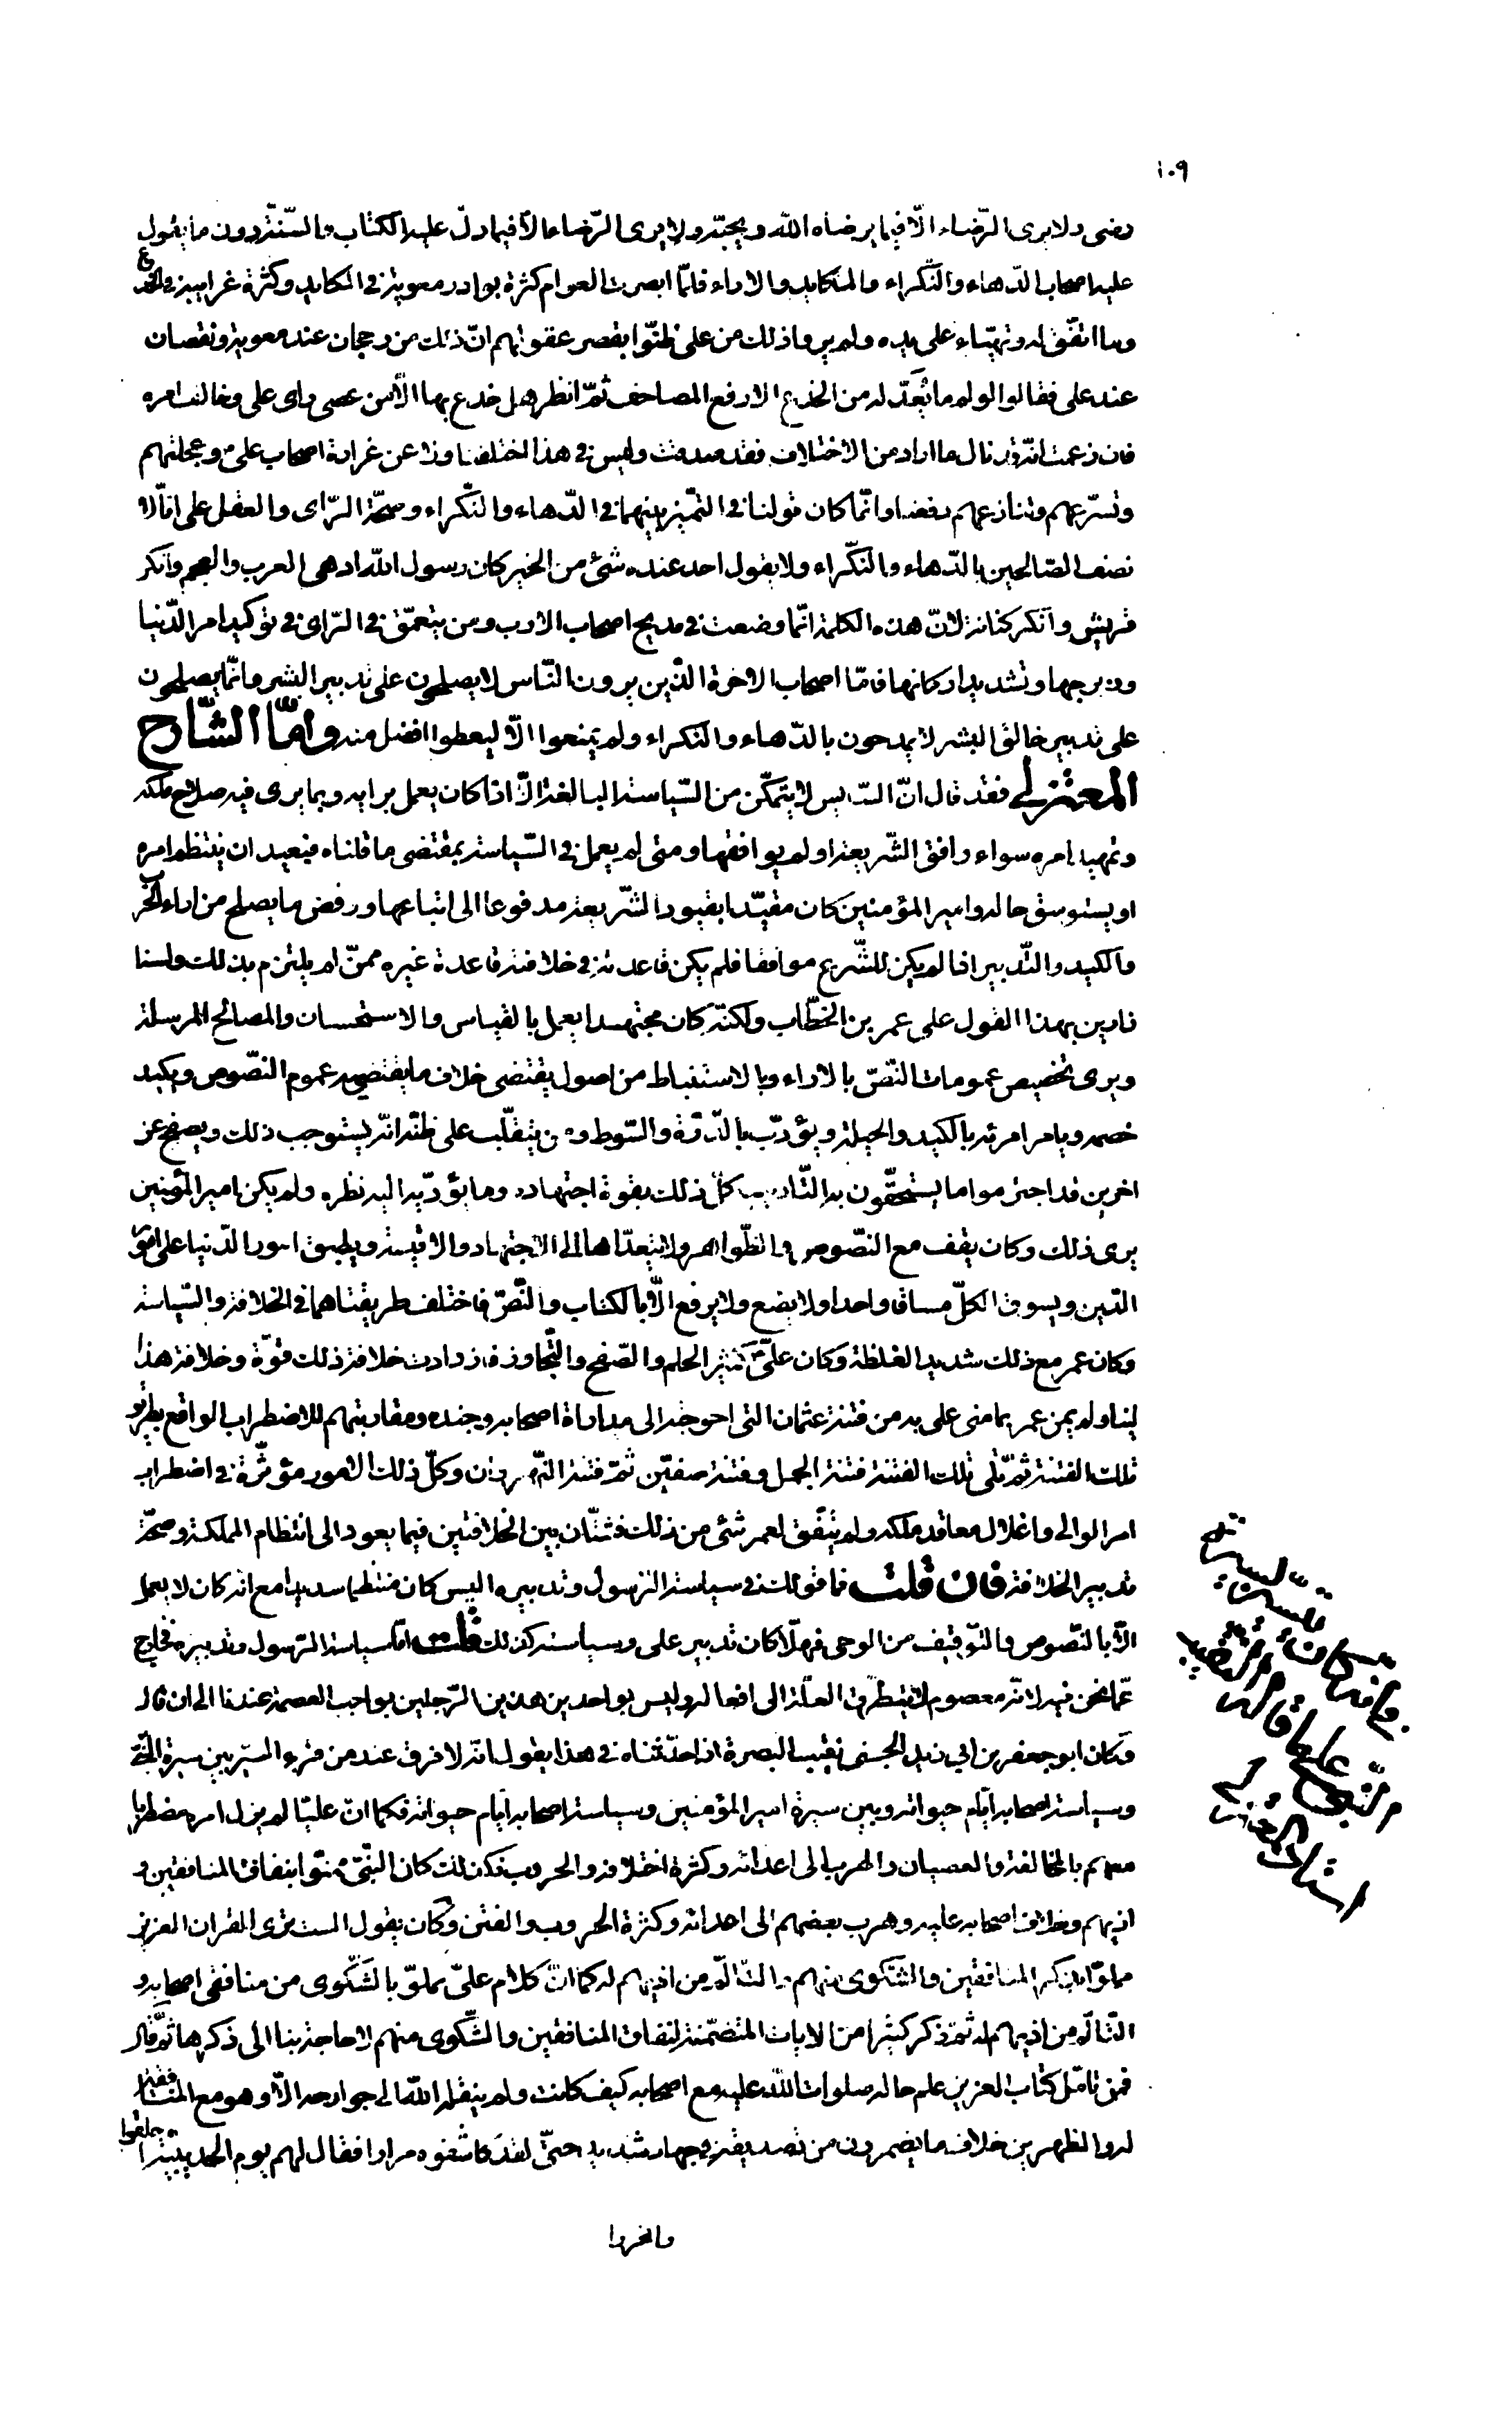 ١٠٩
رضى ولا يرى الرّضاء الّا فيما يرضاه الله ويحبّه ولا يرى الرّضاء الّا فيما دلّ عليه الكتاب والسّنّة دون ما يقول
عليه اصحاب الدّهاء والنّكراء والمكايد والاراء فلمّا ابصرت العوام كثرة بوادر معوية في المكايد وكثرة غرايبه في الخدع
وما اتّفق له وتهيّاء على يده ولم يروا ذلك من على ظنّوا بقصر عقولهم انّ ذلك من رجحان عند معوية ونقصان
عند على فقالوا لو لم ما يعدّ له من الخدع الا رفع المصاحف ثمّ انظر هل خدع بها الّا من عصى راى على وخالف امره
فان زعمت انّه قد نال ما اراد من الاختلاف فقد صدقت وليس في هذا اختلفنا ولا عن غرارة اصحاب على وعجلتهم
وتسرّعهم وتنازعهم دفعنا وانّما كان قولنا في التّميز بينهما في الدّهاء والنّكراء وصحّة الرّاى والعقل على انّا لا
نصف الصّالحين بالدّهاء والنّكراء ولا يقول احد عنده شئ من الخير كان رسول الله ادهى العرب والعجم وانكر
قريش وانكر كنانة لانّ هذه الكلمة انّما وضعت في مديح اصحاب الارب ومن يتعمّق في الرّاى في توكيد امر الدّنيا
وزبرجها وتشديد اركانها فامّا اصحاب الاخرة الذّين يرون النّاس لا يصلحون على تدبير البشر وانّما يصلحون
على تدبير خالق البشر لا يمدحون بالدّهاء والنكراء ولم يمنعوا الّا ليعطوا افضل منه وامّا الشّارح
المعتزلى فقد قال انّ السّايس لا يتمكّن من السّياسة البالغة الّا اذا كان يعمل برايه وبما يرى فيه صلاح ملكه
وتمهيد امره سواء وافق الشّريعة او لم يوافقها ومتى لم يعمل في السّياسة بمقتضى ما قلناه فبعيد ان ينتظم امره
او يستوسق حاله وامير المؤمنين كان مقيّدا بقيود الشّريعة مدفوعا الى اتباعها ورفض ما يصلح من اراء الحرب
والكيد والتّدبير اذا لم يكن للشّرع موافقا فلم يكن قاعدته في خلافته قاعدة غيره ممّن لم يلتزم بذلك ولسنا
زارين بهذا القول على عمر بن الخطّاب ولكنّه كان مجتهدا يعمل بالقياس والاستحسان والمصالح المرسلة
ويرى تخصيص عمومات النّصّ بالاراء وبالاستنباط من اصول يقتضى خلاف ما يقتضيه عموم النّصوص ويكيد
خصمه ويامر امرئه بالكيد والحيلة ويؤدّب بالدّرّة والسّوط من يتغلّب على ظنّه انّه يستوجب ذلك ويصفح عن
اخرين قد اجترموا ما يستحقّون به التّاديب كلّ ذلك بقوة اجتهاده وما يؤدّيه اليه نظره ولم يكن امير المؤمنين
يرى ذلك وكان يقف مع النصّوص والظّواهر ولا يتعدّاها الى الاجتهاد والاقيسة ويطبق امور الدّنيا على امور
الدّين ويسوق الكلّ مساقا واحدا ولا يضع ولا يرفع الّا بالكتاب والنّصّ فاختلف طريقتاهما في الخلافة والسّياسة
وكان عمر مع ذلك شديد الغلظة وكان علىّ كثير الحلم والصّفح والتّجاوز فازدادت خلافة ذلك قوّة وخلافة هذا
لينا ولم يمن عمر بما منى على به من فتنة عثمان التى احوجته الى مداراة اصحابه وجنده ومقاربتهم للاضطراب الواقع بطريق
تلك الفتنة ثمّ تلى تلك الفتنة فتنة الجمل وفتنة صفّين ثمّ فتنة النّهروان وكلّ ذلك الامور مؤثّرة في اضطراب
امر الوالى وانحلال معاقد ملكه ولم يتّفق لعمر شئ من ذلك فشتّان بين الخلافتين فيما يعود الى انتظام المملكة وصحّة
تدبير الخلافة فان قلت فما قولك في سياسة الرّسول وتدبيره اليس كان منتظما سديدا مع انه كان لا يعمل
الّا بالنّصوص والتّوقيف من الوحى فهلّا كان تدبير على وسياسته كذلك قلت امّا سياسة الرّسول وتدبيره فخارج
عمّا نحن فيه لانّه معصوم لا يتطرّق الغلّة الى افعاله وليس بواحد من هذين الرّجلين بواجب العصمة عندنا الى ان قال
وكان ابو جعفر بن ابي زيد الحسنى نقيب البصرة اذا حدّثناه في هذا يقول انّه لا فرق عند من قرء السّيرتين سيرة النّبىّ
وسياسة اصحابه ايّام حيوته وبين سيرة امير المؤمنين وسياسة اصحابه ايّام حيوته فكما انّ عليّا لم يزل امره مضطربا
معهم بالمخالفة والعصيان والهرب الى اعدائه وكثرة اختلافه والحروب فكذلك كان النّبىّ ممنوّا بنفاق المنافقين و
اذيهم وخلاف اصحابه عليه وهرب بعضهم الى اعدائه وكثرة الحروب والفتن وكان يقول الست ترى القران العزيز
مملوّا بذكر المنافقين والشّكوى منهم والتّالّم من اذيهم له كما انّ كلام علىّ مملوّ بالشّكوى من منافقى اصحابه و
التّالّم من اذيهم له ثمّ ذكر كثيرا من الايات المتضمّنة لنفاق المنافقين والشّكوى منهم لا حاجة بنا الى ذكرها ثمّ قال
فمن تامّل كتاب العزيز علم حاله صلوات الله عليه مع اصحابه كيف كانت ولم ينقله الله الى جواره الّا وهو مع المنافقين
له والمظهرين خلاف ما يضمرون من تصديقه في جهاد شديد حتّى لقد كاشفوه مرارا فقال لهم يوم الحديبية احلقوا
وانحروا